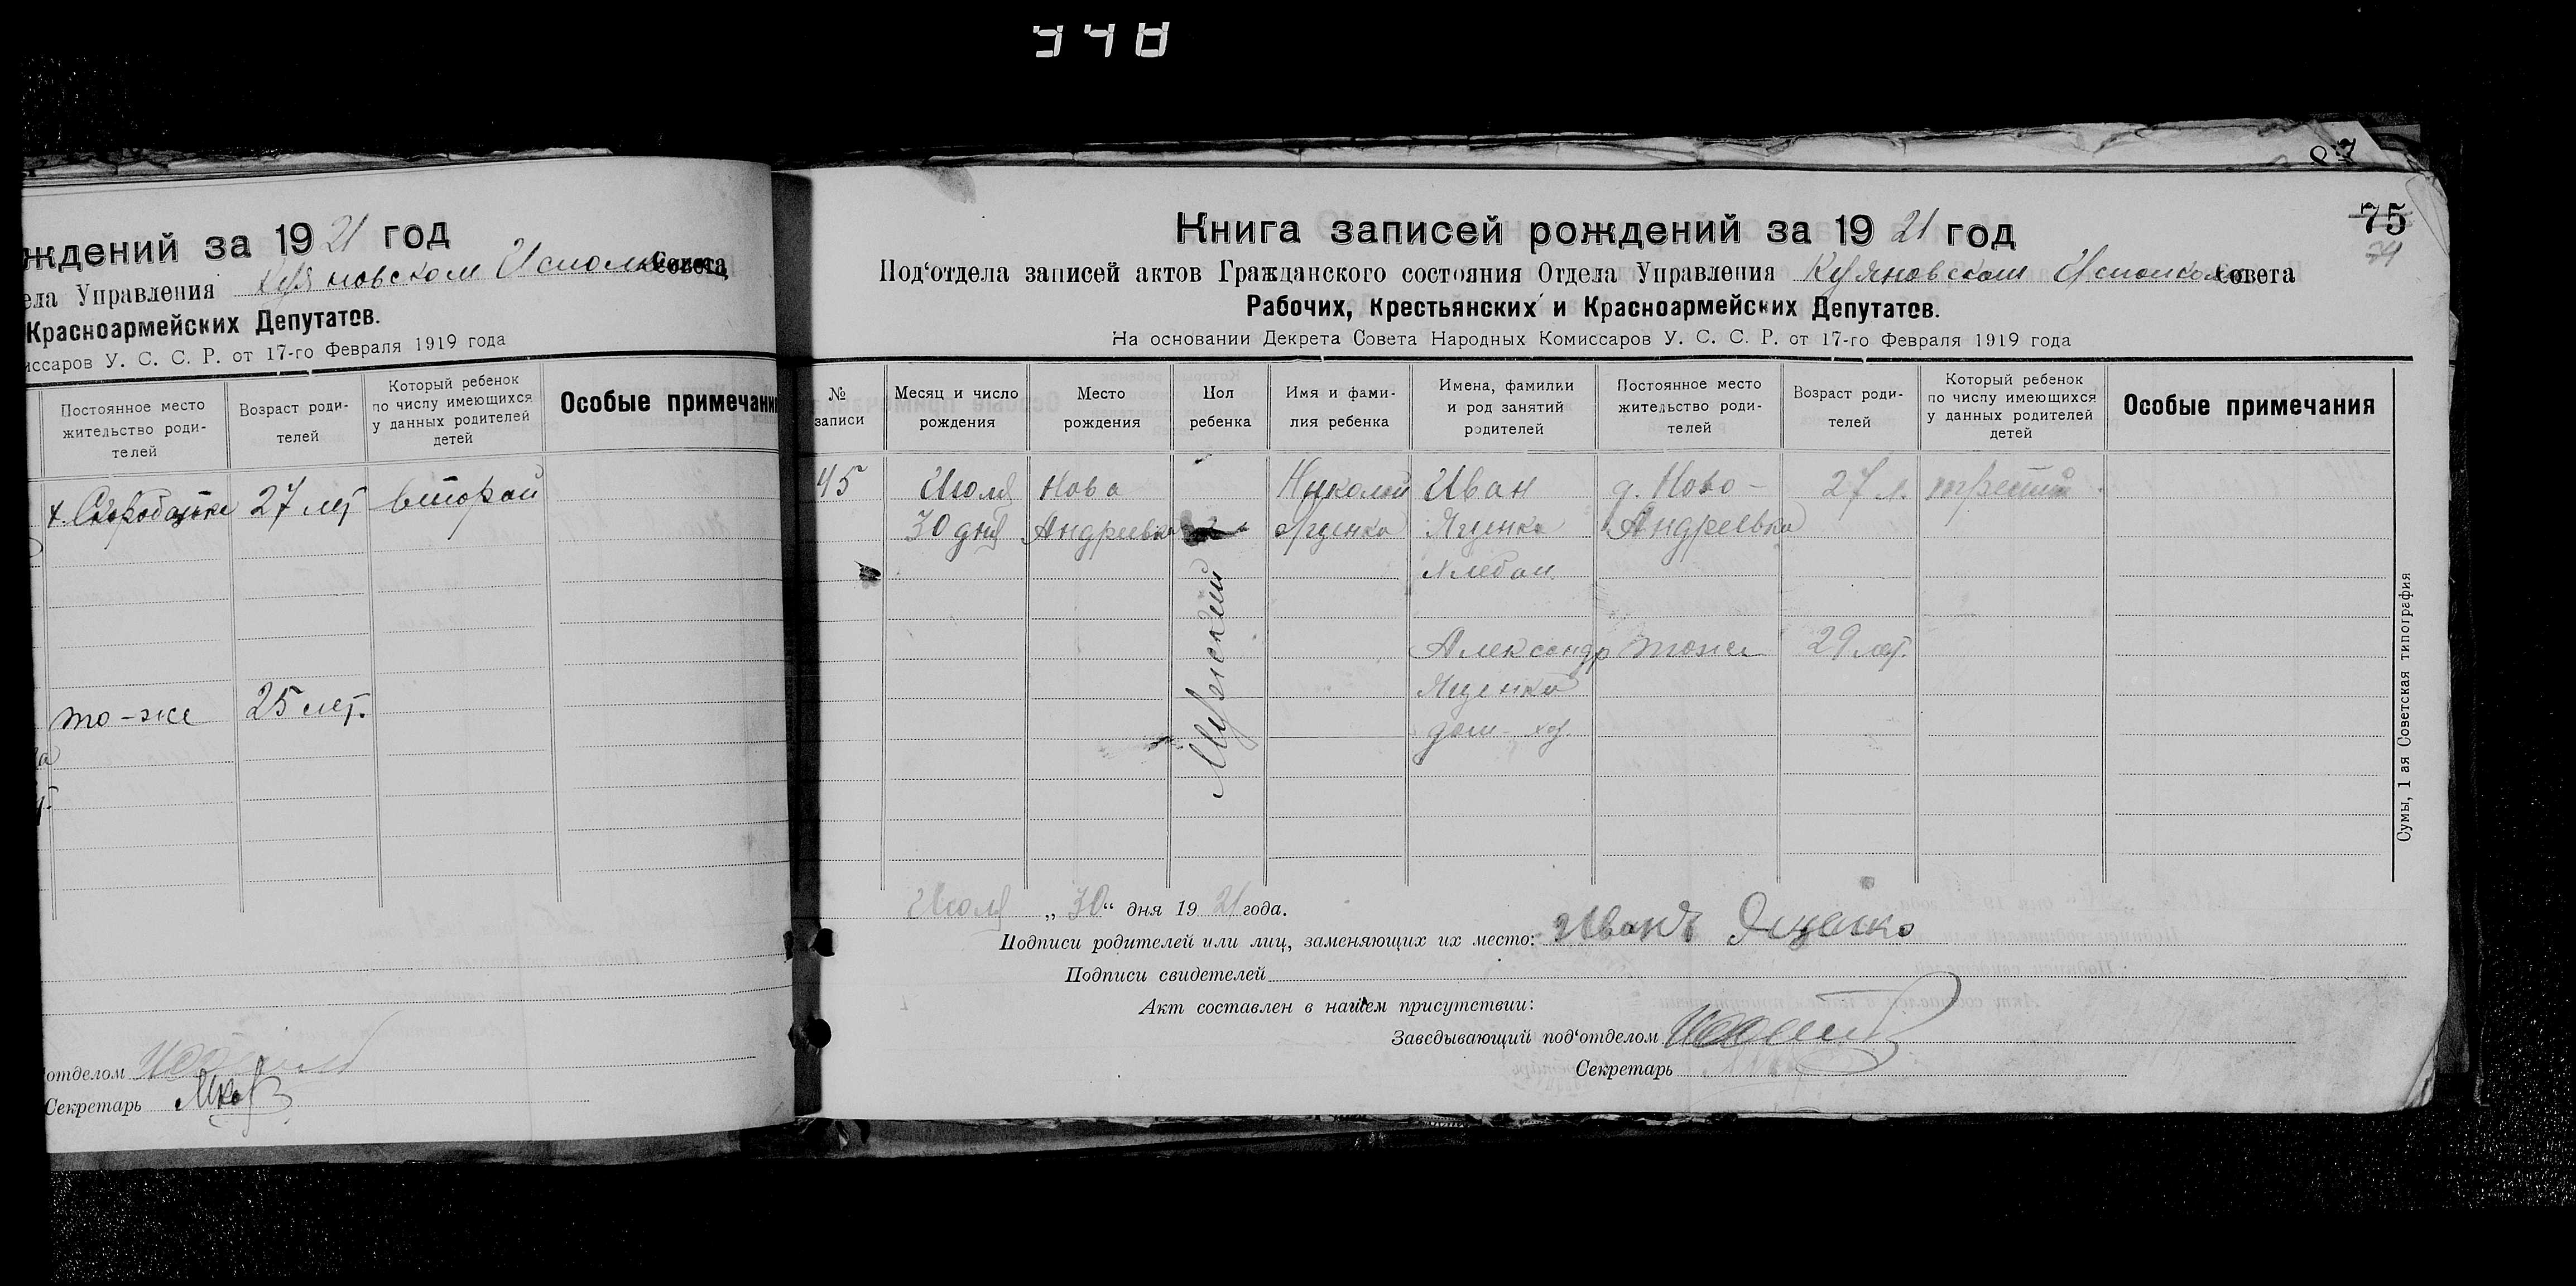 348
87
ждений за 1921 год
ела Управления Куяновском Исполком Совета
Красноармейских Депутатов.
иссаров У. С. С. Р. от 17-го Февраля 1919 года
Постоянное место жительство роди-телей
Возраст роди-телей
Который ребенок по числу имеющихся у данных родителей детей
Особые примечани
27 лет второй
то-же 25 лет.
отделом
Секретарь
75
74
Книга записей рождений за 1921 год
Под‘отдела записей актов Гражданского состояния Отдела Управления Куяновском Исполком Совета
Рабочих, Крестьянских и Красноармейских Депутатов.
На основании Декрета Совета Народных Комиссаров У. С. С. Р. от 17-го Февраля 1919 года
№ записи
Месяц и число рождения
Место рождения
Пол ребенка
Имя и фами-лия ребенка
Имена, фамилии и род занятий родителей
Постоянное место жительство роди-телей
Возраст роди-телей
Который ребенок по числу имеющихся у данных родителей детей
Особые примечания
45 Июля Ново Николай Иван д. Ново- 27 л. третий
30 дня Андреевка Яценко Яценко Андреевка
Хлебоп.
Мужский
Александр тоже 29 лет.
Яценко
дом-хоз.
Июля „30“ дня 1921 года.
Подписи родителей или лиц, заменяющих их место: Иванъ Яценко
Подписи свидетелей
Акт составлен в нашем присутствии:
Заведывающий под‘отделом
Секретарь
Сумы, 1 ая Советская типография